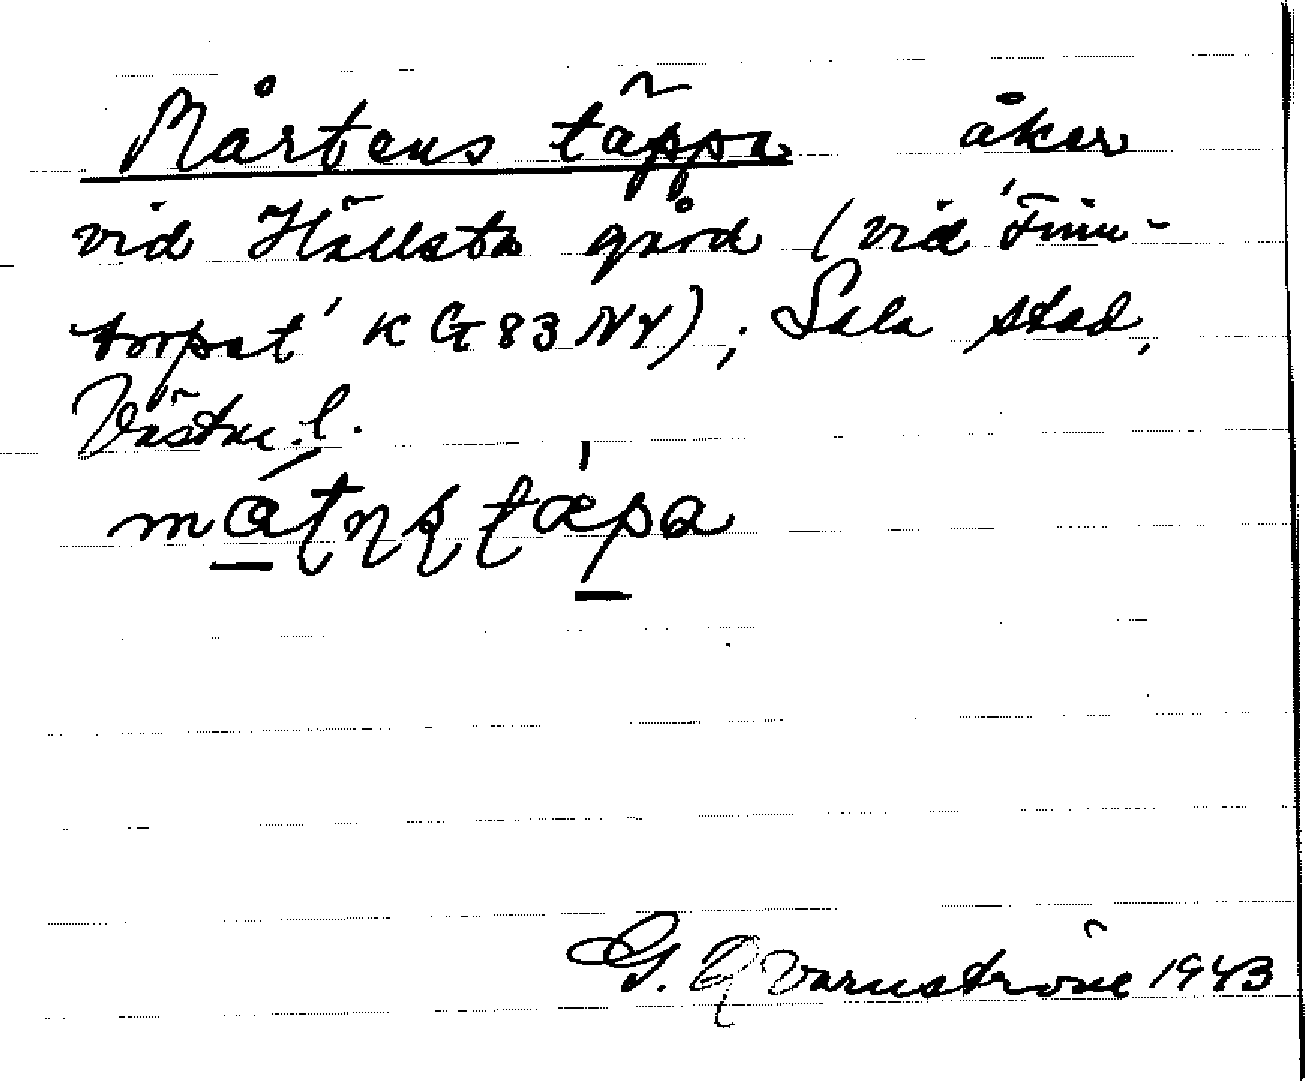 Mårtens täppa åker
vid Hällsta gård (vid 'Finn-
torpet' KG83NV); Sala stad,
Västm. l.
G. Qvarnström 1943